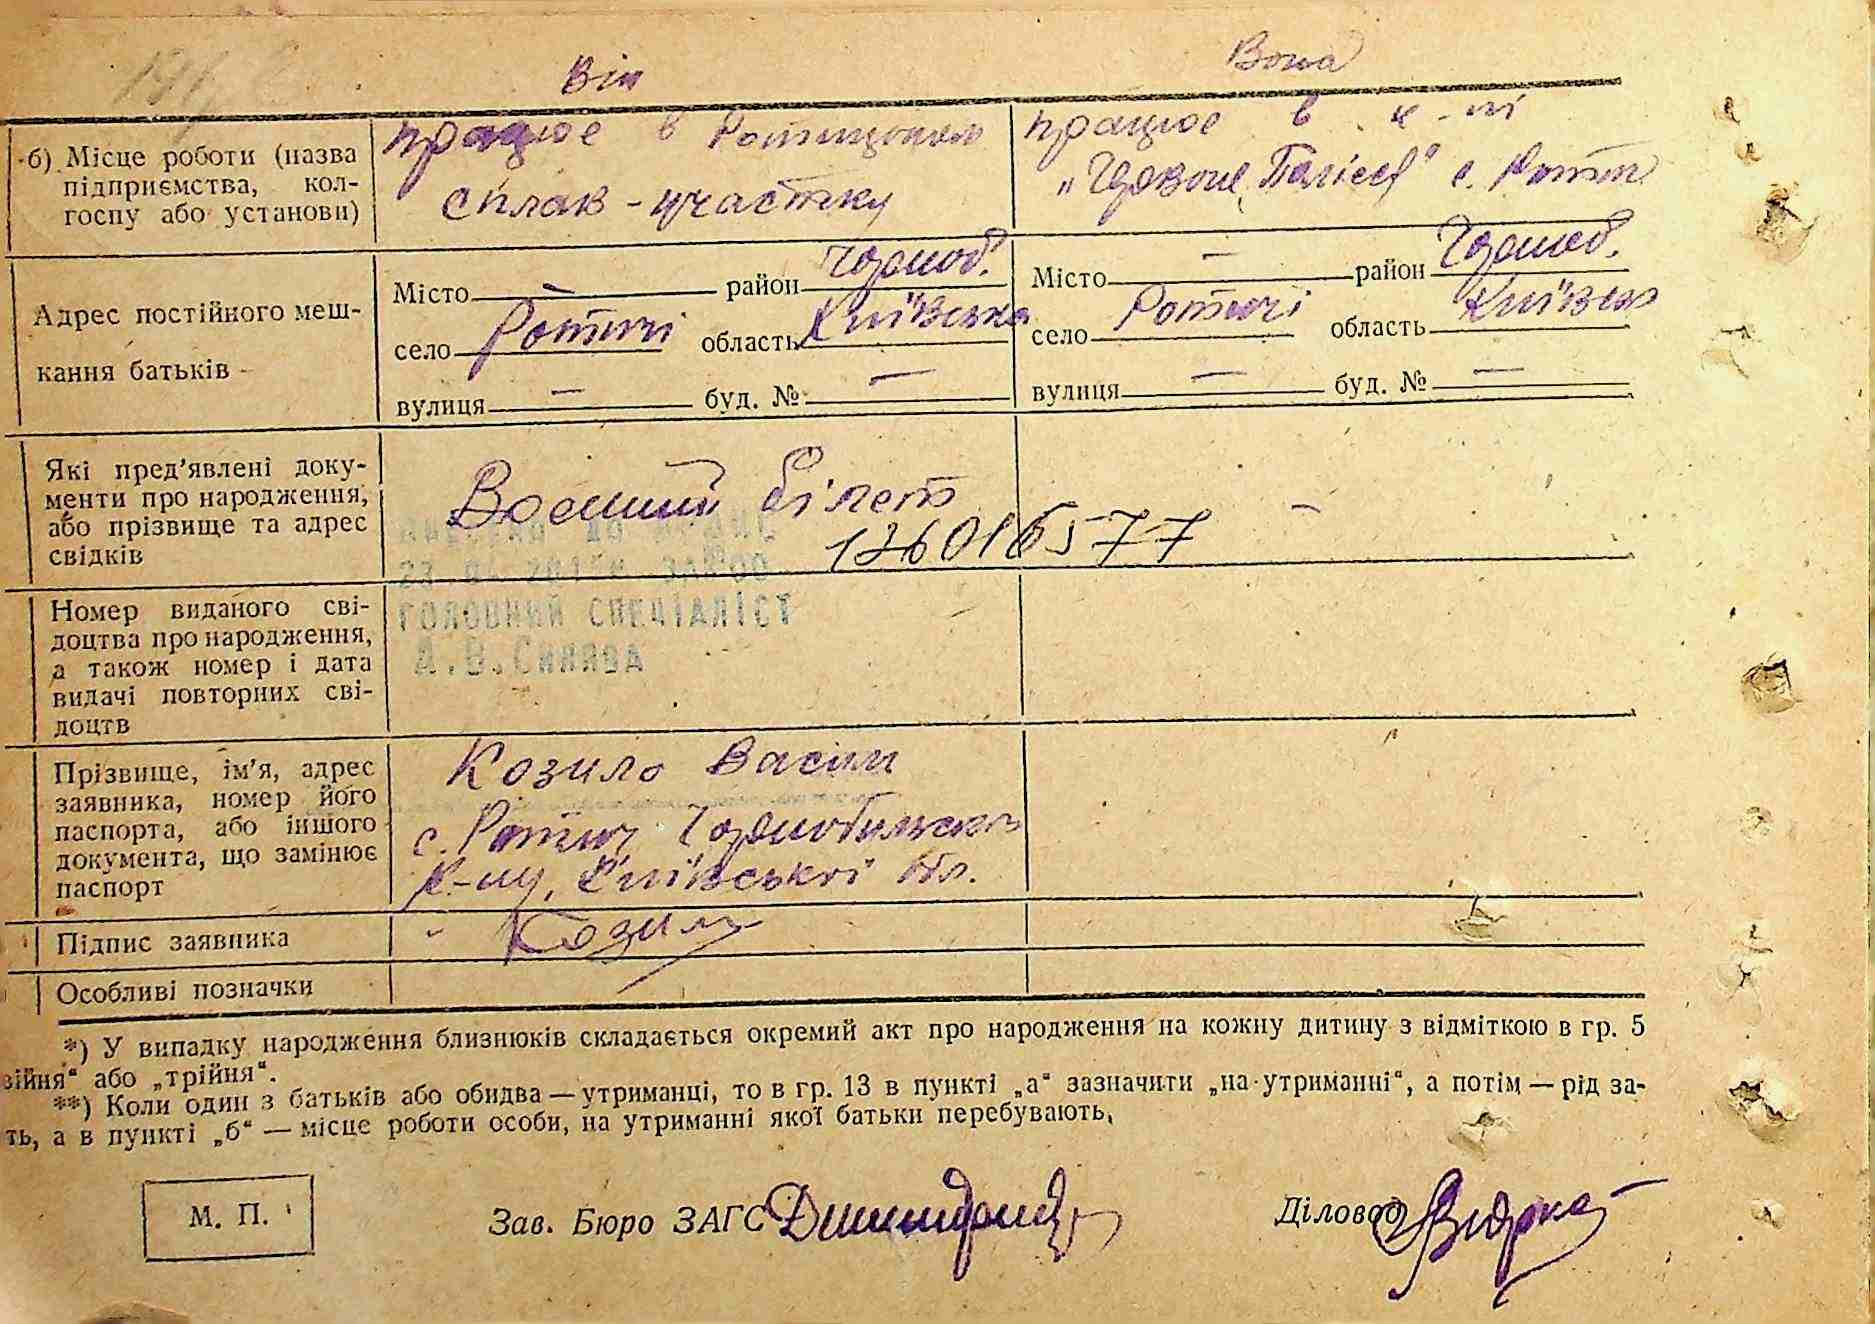 Він Вона
б) Місце роботи (назва
підприємства, кол-
госпу або установи)
працює в
сплав-участку
працює в
"Червоне Полісся" с.
Адрес постійного меш-
кання батьків -
Місто — район Чорноб.
село Ротичі область Київська
вулиця — буд. № —
Місто — район Чорноб.
село Ротичі область Київська
вулиця — буд. № —
Які пред'явлені доку-
менти про народження,
або прізвище та адрес
свідків
Воєнний білет
126016577
—
ГОЛОВНИЙ СПЕЦІАЛІСТ
Номер виданого сві-
доцтва про народження,
а також номер і дата
видачі повторних сві-
доцтв
Прізвище, ім'я, адрес
заявника, номер його
паспорта, або іншого
документа, що замінює
паспорт
Козило Васил
с. Ротич Чорнобильськ
р-ну, Київської обл.
Підпис заявника
Козил
Особливі позначки
*) У випадку народження близнюків складається окремий акт про народження на кожну дитину з відміткою в гр. 5
війня" або „трійня".
**) Коли один з батьків або обидва — утриманці, то в гр. 13 в пункті „а" зазначити „на утриманні", а потім — рід за-
ть, а в пункті „б" — місце роботи особи, на утриманні якої батьки перебувають,
М. П.
Зав. Бюро ЗАГС
Діловод